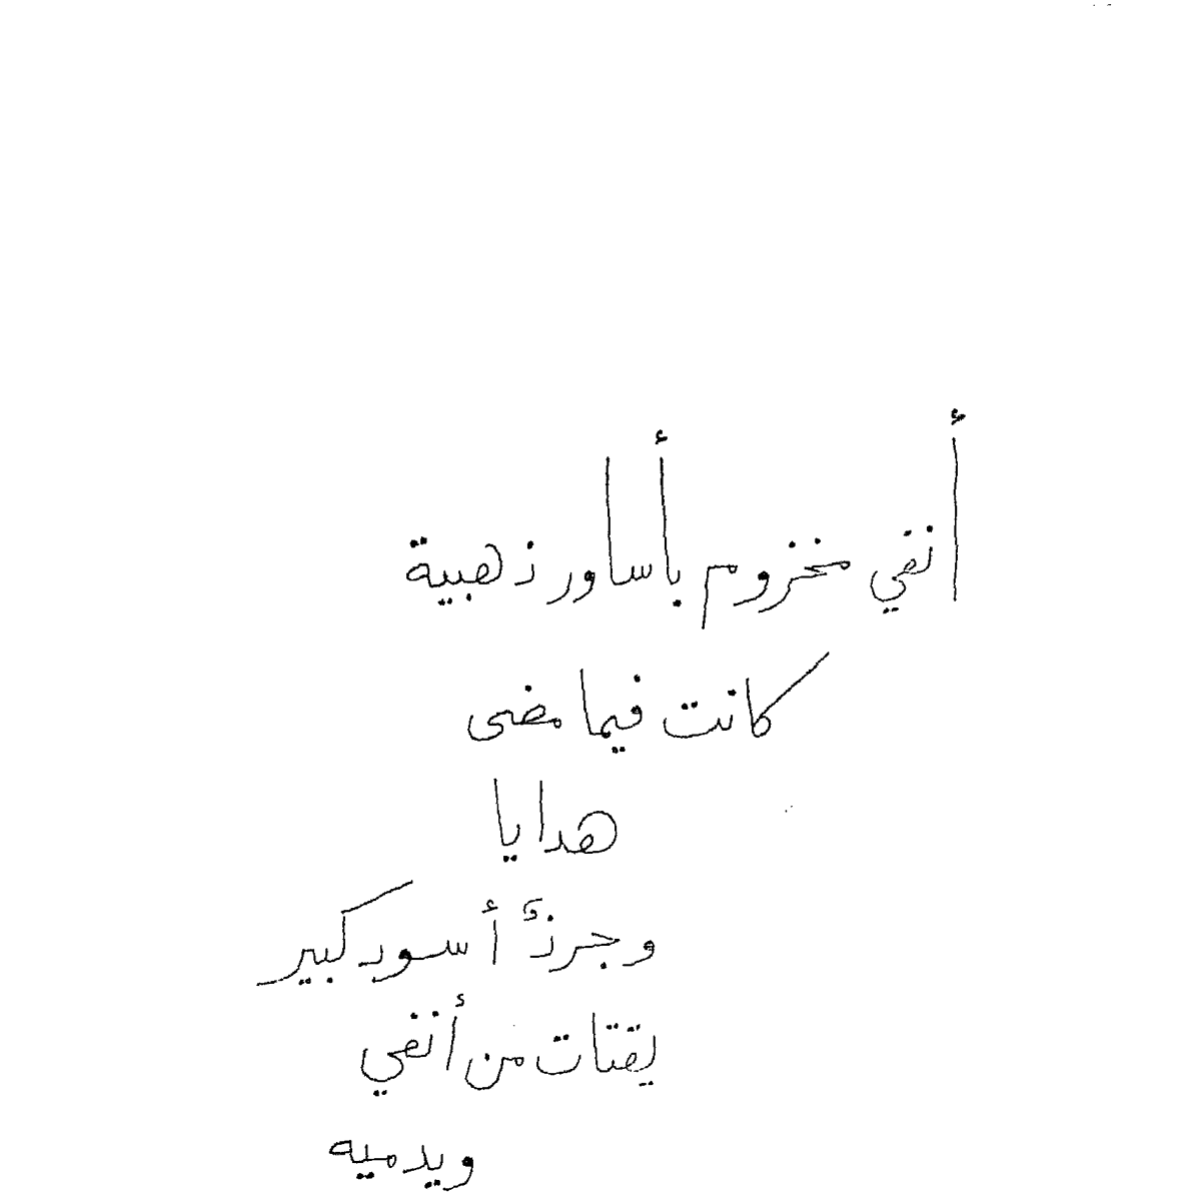 أنفي مخزوم بأساور ذهبية
كانت فيما مضى
هدايا
وجرذٌ أسود كبير
يقتات من أنفي
ويدميه